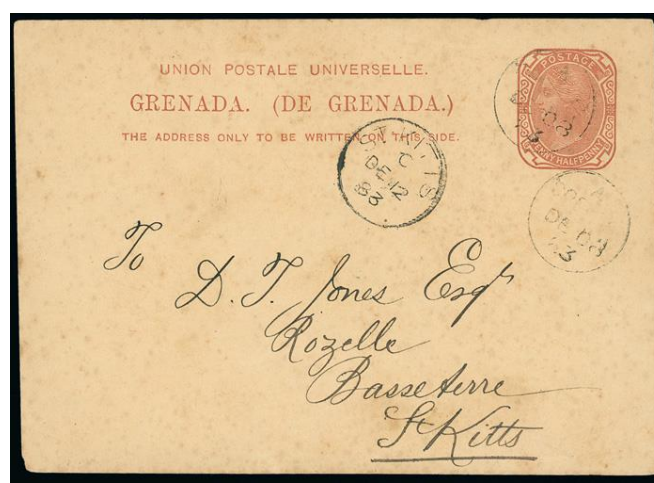 UNION POSTALE UNIVERSELLE.
GRENADA. (DE GRENADA.)
THE ADDRESS ONLY TO BE WRITTEN ON THIS SIDE.
POSTAGE
PENNY HALFPENNY
A
DE 08
83
ST. KITTS
C
DE 12
83
A
DE 08
83
To
D. T. Jones Esqr
Rozelle
Basseterre
St Kitts